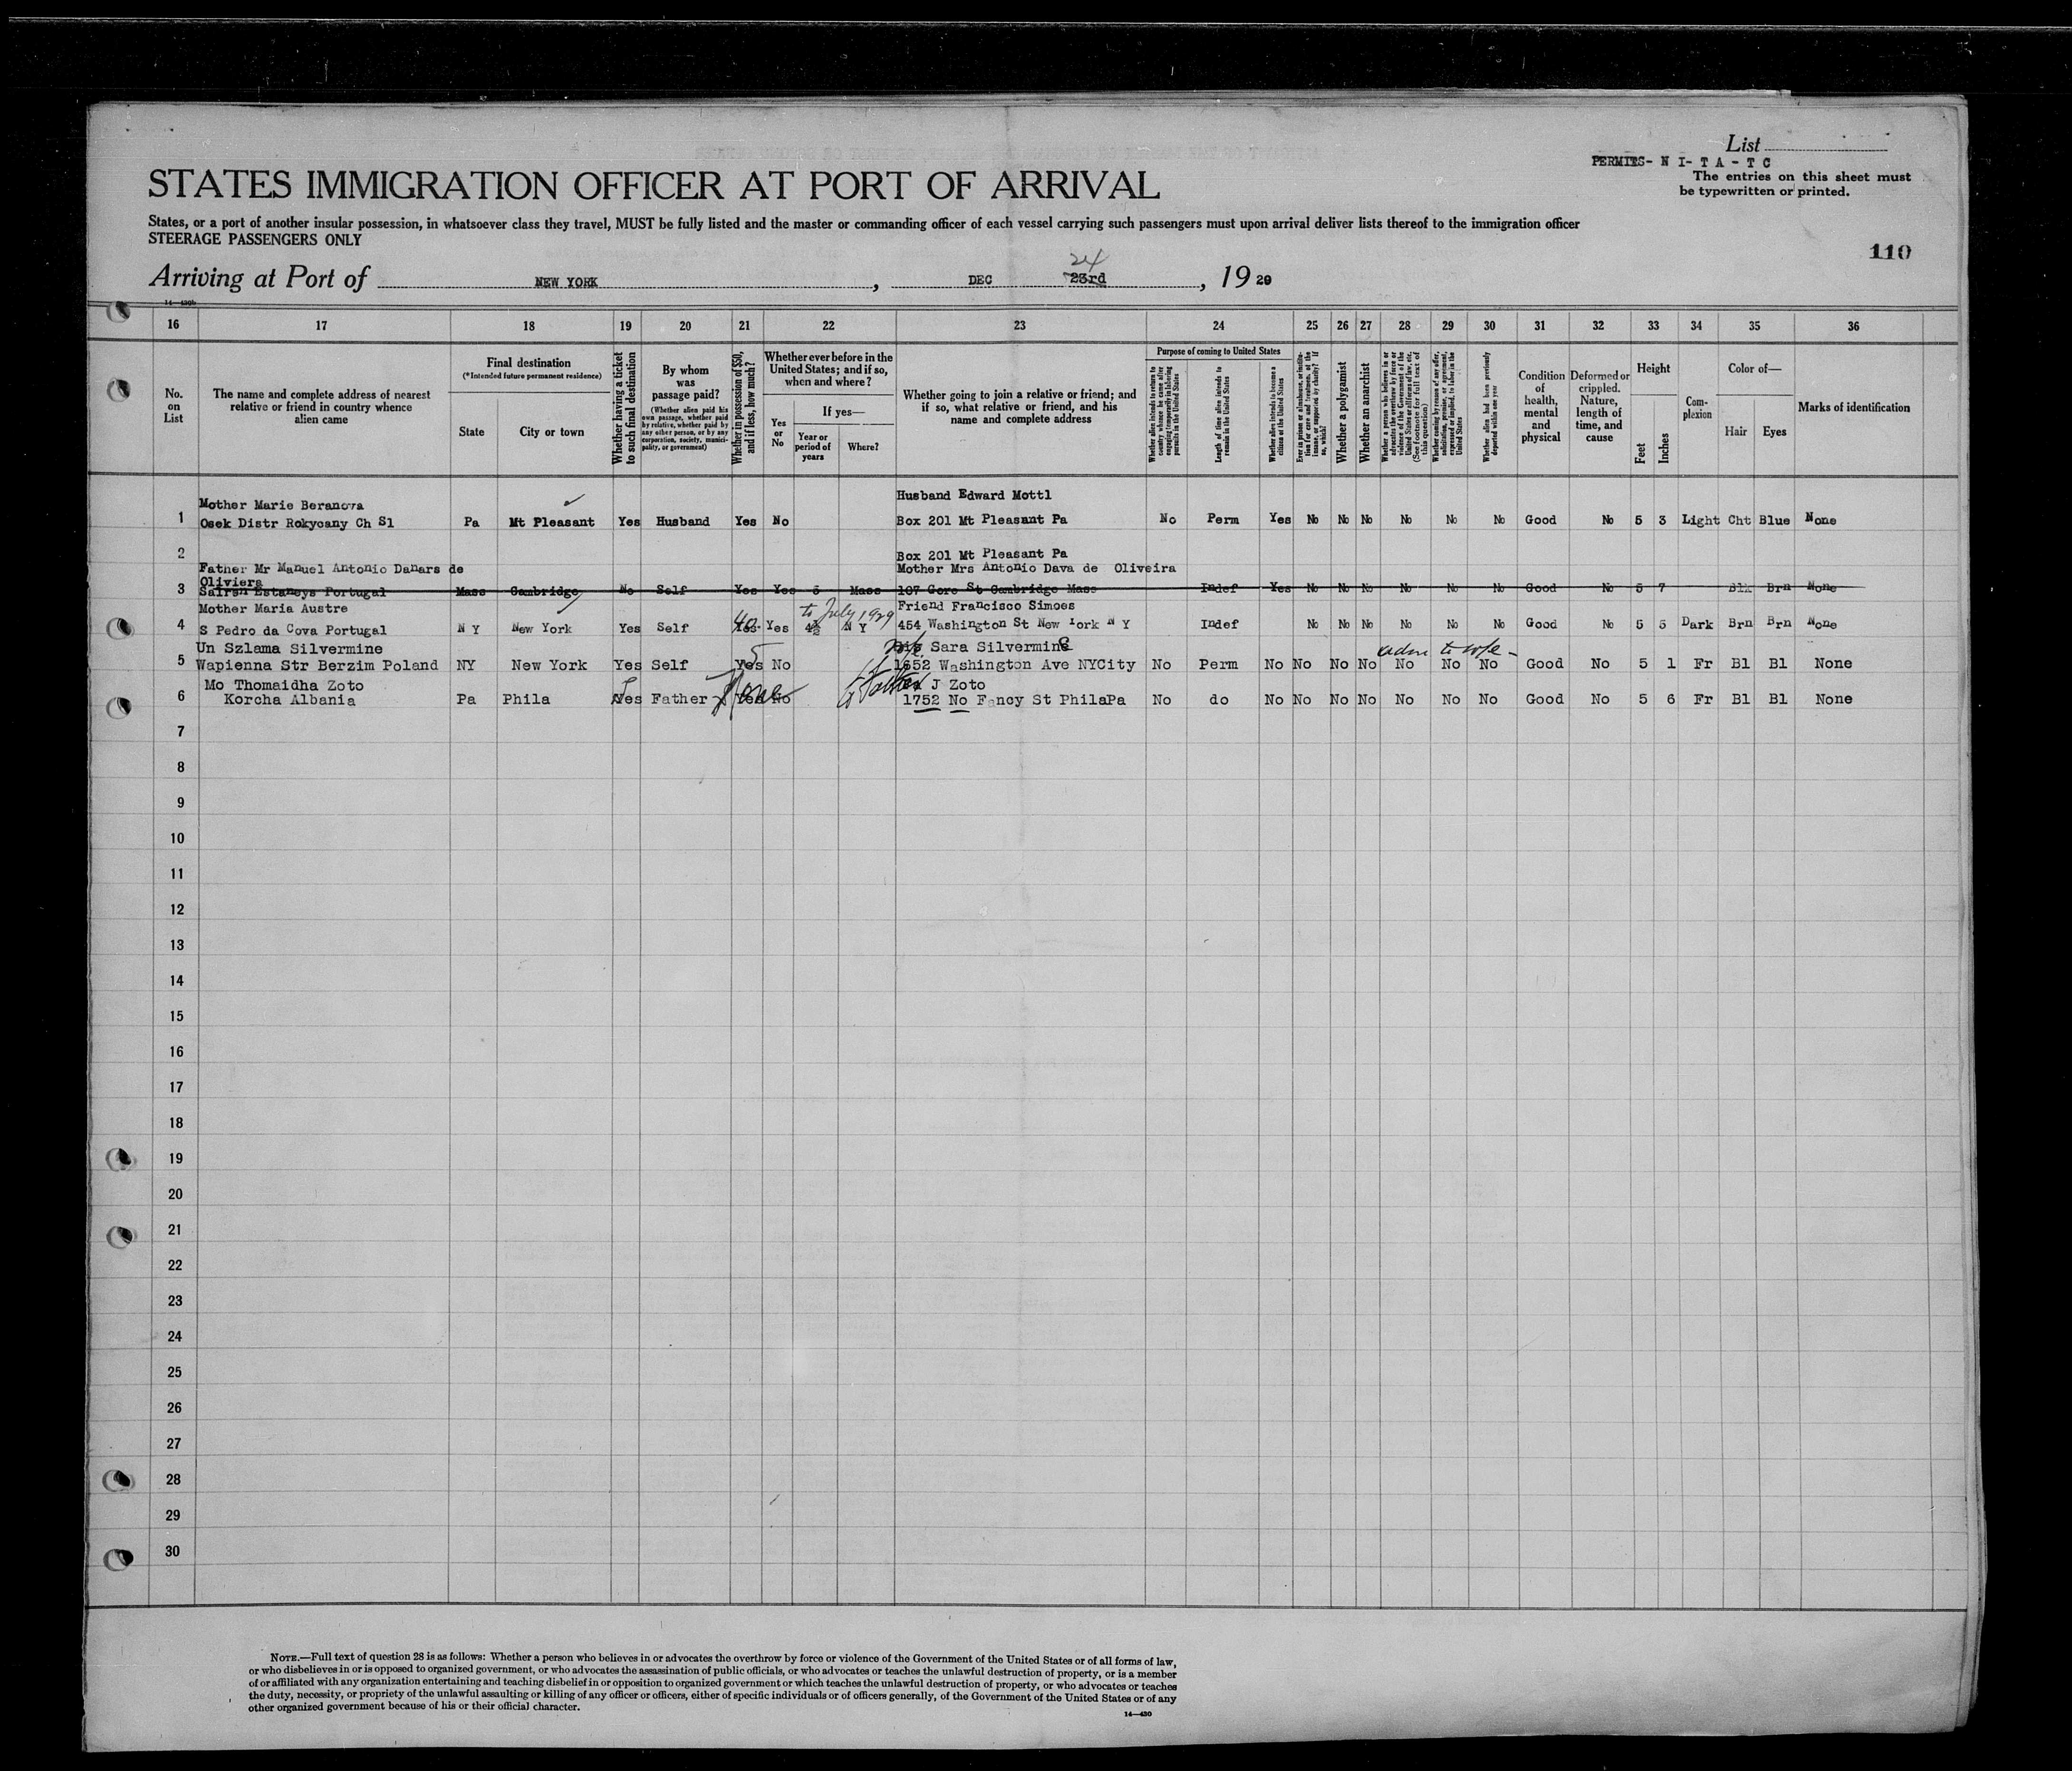 List
PERMITS- N I- T A - T C
The entries on this sheet must
be typewritten or printed.
STATES IMMIGRATION OFFICER AT PORT OF ARRIVAL
States, or a port of another insular possession, in whatsoever class they travel, MUST be fully listed and the master or commanding officer of each vessel carrying such passengers must upon arrival deliver lists thereof to the immigration officer
STEERAGE PASSENGERS ONLY
110
24
Arriving at Port of NEW YORK, DEC 23rd, 19 29
14—430b
16 17 18 19 20 21 22 23 24 25 26 27 28 29 30 31 32 33 34 35 36
No. on List
The name and complete address of nearest relative or friend in country whence alien came
Final destination
(*Intended future permanent residence)
State
City or town
Whether having a ticket to such final destination
By whom was passage paid?
(Whether alien paid his own passage, whether paid by relative, whether paid by any other person, or by any corporation, society, municipality, or government)
Whether in possession of $50, and if less, how much?
Whether ever before in the United States; and if so, when and where?
Yes or No
If yes—
Year or period of years
Where?
Whether going to join a relative or friend; and if so, what relative or friend, and his name and complete address
Purpose of coming to United States
Whether alien intends to return to country whence he came after engaging temporarily in laboring pursuits in the United States
Length of time alien intends to remain in the United States
Whether alien intends to become a citizen of the United States
Ever in prison or almshouse, or institution for care and treatment of the insane, or supported by charity? If so, which?
Whether a polygamist
Whether an anarchist
Whether a person who believes in or advocates the overthrow by force or violence of the Government of the United States or all forms of law, etc. (See footnote for full text of this question)
Whether coming by reason of any offer, solicitation, promise, or agreement, expressed or implied, to labor in the United States
Whether alien had been previously deported within one year
Condition of health, mental and physical
Deformed or crippled. Nature, length of time, and cause
Height
Feet
Inches
Complexion
Color of—
Hair
Eyes
Marks of identification
Mother Marie Beranova Husband Edward Mottl
1 Osek Distr Rokycany Ch Sl Pa Mt Pleasant Yes Husband Yes No Box 201 Mt Pleasant Pa No Perm Yes No No No No No No Good No 5 3 Light Cht Blue None
2 Box 201 Mt Pleasant Pa
Father Mr Manuel Antonio Danars de Mother Mrs Antonio Dava de Oliveira
Oliviera
3 Estaneys Portugal Mass Cambridge No Self Yes Yes 5 Mass 107 Gore St Cambridge Mass Indef Yes No No No No No No Good No 5 7 Blk Brn None
Mother Maria Austre to July 1929 Friend Francisco Simoes
4 S Pedro da Cova Portugal N Y New York Yes Self 40. Yes Yes N Y 454 Washington St New York N Y Indef No No No No No No Good No 5 5 Dark Brn Brn None
Un Szlama Silvermine 5 Sara Silvermine
5 Wapienna Str Berzim Poland NY New York Yes Self Yes No 1652 Washington Ave NYCity No Perm No No No No No No No Good No 5 1 Fr Bl Bl None
Mo Thomaidha Zoto Father J Zoto
6 Korcha Albania Pa Phila Yes Father None Yes No 1752 No Fancy St PhilaPa No do No No No No No No No Good No 5 6 Fr Bl Bl None
7
8
9
10
11
12
13
14
15
16
17
18
19
20
21
22
23
24
25
26
27
28
29
30
NOTE.—Full text of question 28 is as follows: Whether a person who believes in or advocates the overthrow by force or violence of the Government of the United States or of all forms of law,
or who disbelieves in or is opposed to organized government, or who advocates the assassination of public officials, or who advocates or teaches the unlawful destruction of property, or is a member
of or affiliated with any organization entertaining and teaching disbelief in or opposition to organized government or which teaches the unlawful destruction of property, or who advocates or teaches
the duty, necessity, or propriety of the unlawful assaulting or killing of any officer or officers, either of specific individuals or of officers generally, of the Government of the United States or of any
other organized government because of his or their official character.
14—430